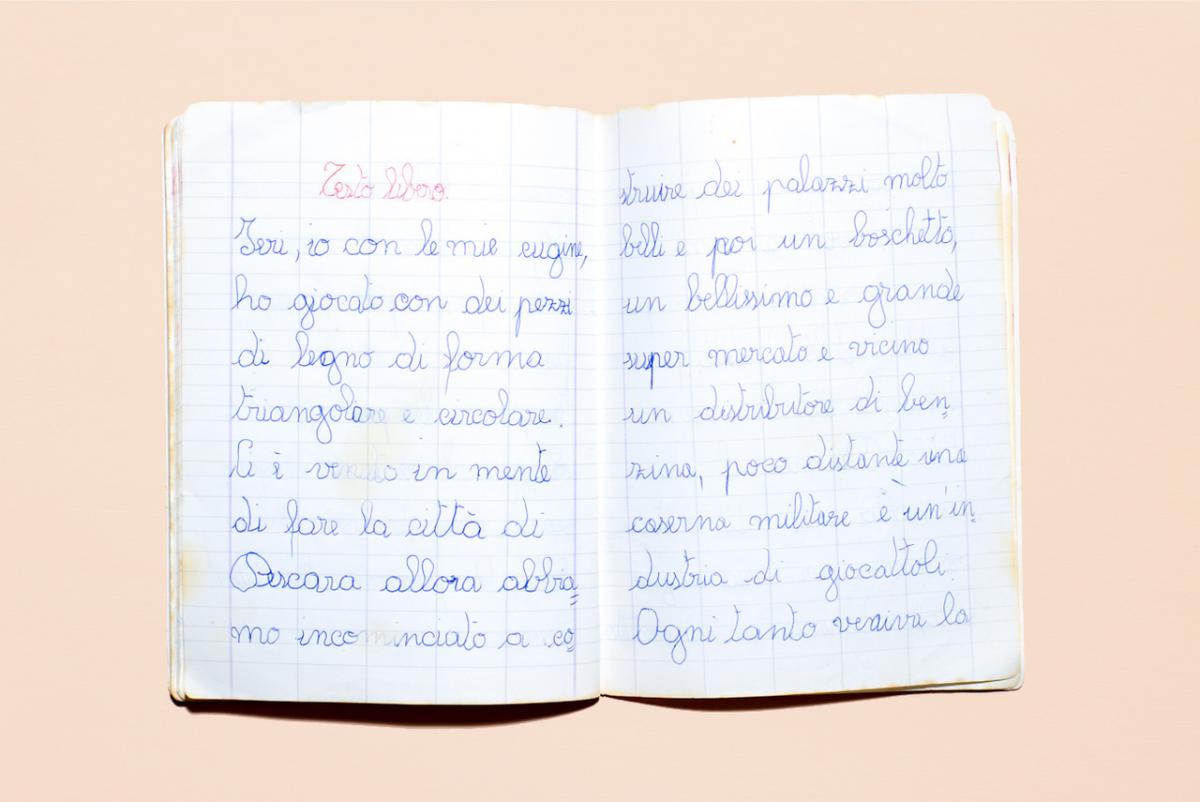 Testo libero.
Ieri, io con le mie cugine,
ho giocato con dei pezzi
di legno di forma
triangolare e circolare.
Ci è venuto in mente
di fare la città di
Pescara allora abbia=
mo incominciato a co=
struire dei palazzi molto
belli e poi un boschetto,
un bellissimo e grande
super mercato e vicino
un distributore di ben=
zina, poco distante una
caserma militare è un'in=
dustria di giocattoli.
Ogni tanto veniva la